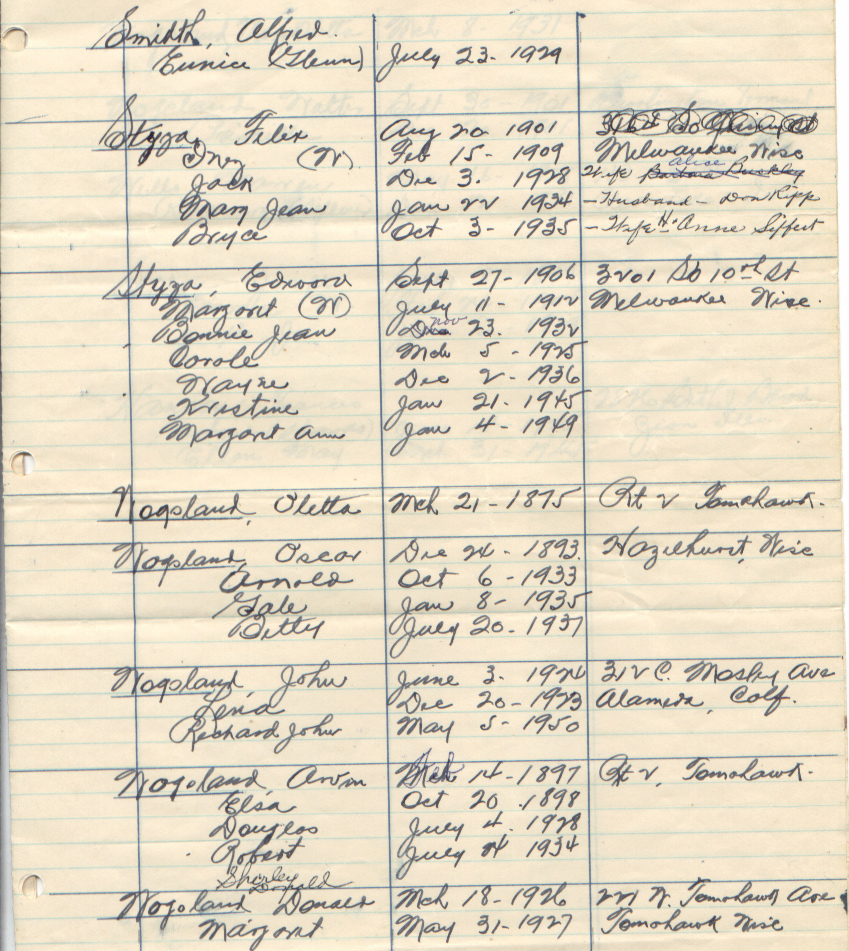 Smihth, Alfred.
Eunice (Glenn) July 23 - 1929
Styza, Felix Aug 20 - 1901
Inez (W) Feb 15 - 1909 Milwaukee, Wisc
Jack Dec 3. 1928 Wife Alice Barbara Buckley
Mary Jean Jan 22 1934 - Husband - Don Ripp
Bryce Oct 3 - 1935 - Wife Anne Siffert
Styza, Edward Sept 27 - 1906 3201 So 10th St
Margaret (W) July 11 - 1912 Milwaukee Wisc.
Bonnie Jean Dec Nov 23. 1932
Carole Mch 5 - 1925
Wayne Dec 2 - 1936
Kristine Jan 21 - 1945
Margaret Ann Jan 4 - 1949
Wogsland, Oletta Mch 21 - 1875 Rt 2 Tomahawk.
Wogsland, Oscar Dec 24 - 1893. Hazelhurst, Wisc
Arnold Oct 6 - 1933
Gale Jan 8 - 1935
Betty July 20 - 1937
Wogsland, John June 3 - 1924 312 C. Mosley Ave
Lena Dec 20 - 1923 Alameda, Calf.
Richard John May 5 - 1950
Wogsland, Arvin Mch 14 - 1897 Rt 2, Tomahawk.
Elsa Oct 20. 1898
Douglas July 4. 1928
Robert July 24 1934
Shirley Donald
Wogsland Donald Mch 18 - 1926 221 W. Tomahawk Ave
Margaret May 31 - 1927 Tomahawk Wisc